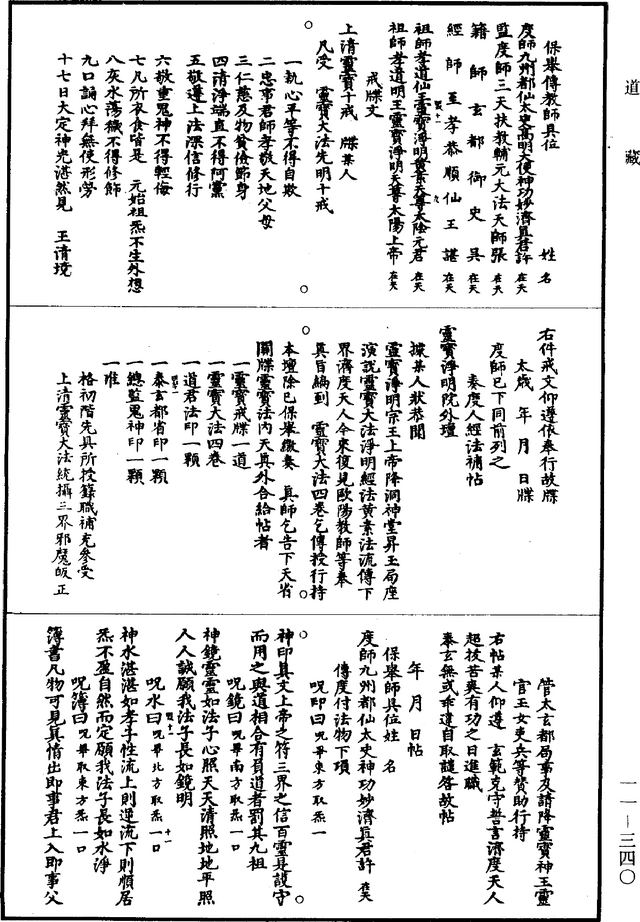 道藏
保舉傳教師具位　姓　名
度師九州都仙太史高明大使神功妙濟真君許　在天
監度師三天扶教輔元大法天師張　在天
籍師玄都御史吳　在天
經師至孝恭順仙王諶　在天
祖師孝道仙王靈寶淨明黃素天尊太陰元君　在天
祖師孝道明王靈寶淨明天尊太陽上帝　在天
戒牒文
上清靈寶十戒　牒某人
凡受　靈寶大法先明十戒
一執心平等不得自欺
二忠事君師孝敬天地父母
三仁慈及物貧儉節身
四清淨端直不得阿黨
五敬遵上法深信修行
六敬重鬼神不得輕侮
七凡所衣食皆是　元始祖炁不生外想
八灰水蕩穢不得修飾
九口誦心拜無使形勞
十七日大定神光湛然見　玉清境
右件戒文仰遵依奉行故牒
太歲　年　月　日牒
度師已下同前列之
奏度人經法補帖
靈寶淨明院外壇
據某人狀恭聞
靈寶淨明宗王上帝降洞神堂昇玉局座
演說靈寶大法淨明經法黃素法流傳下
界濟度天人今來復見歐陽教師等奉
真旨編到　靈寶大法四卷乞傳授行持
本壇除已保舉繳奏　真師乞告下天省
關牒靈寶法內天真外合給帖者
一靈寶戒牒一道
一靈寶大法四卷
一道君法印一顆
一泰玄都省印一顆
一總監鬼神印一顆
一准
格初階先具所授籙職補充參受
上清靈寶大法統攝三界邪魔皈正
管太玄都局事及請降靈寶神王靈
官玉女吏兵等贊助行持
右帖某人仰遵　玄範克守誓言濟度天人
超拔苦爽有功之日進職
泰玄無或乖違自取譴咎故帖
年　月　日帖
保舉師具位姓　名
度師九州都仙太史神功妙濟真君許　在天
傳度付法物下項
呪印曰呪畢東方取炁一
神印真文上帝之符三界之信百靈見設守
而用之與道相合有負道者罰其九祖
呪鏡曰呪畢南方取炁一口
神鏡靈靈如法子心照天天清照地地平照
人人誠願我法子長如鏡明
呪水曰呪畢北方取炁一口
神水湛湛如孝子性流上則逆流下則順居
炁不盈自然而定願我法子長如水淨
呪簿曰呪畢取東方炁一口
簿書凡物可見真情出即事君上入即事父
一一—三四〇